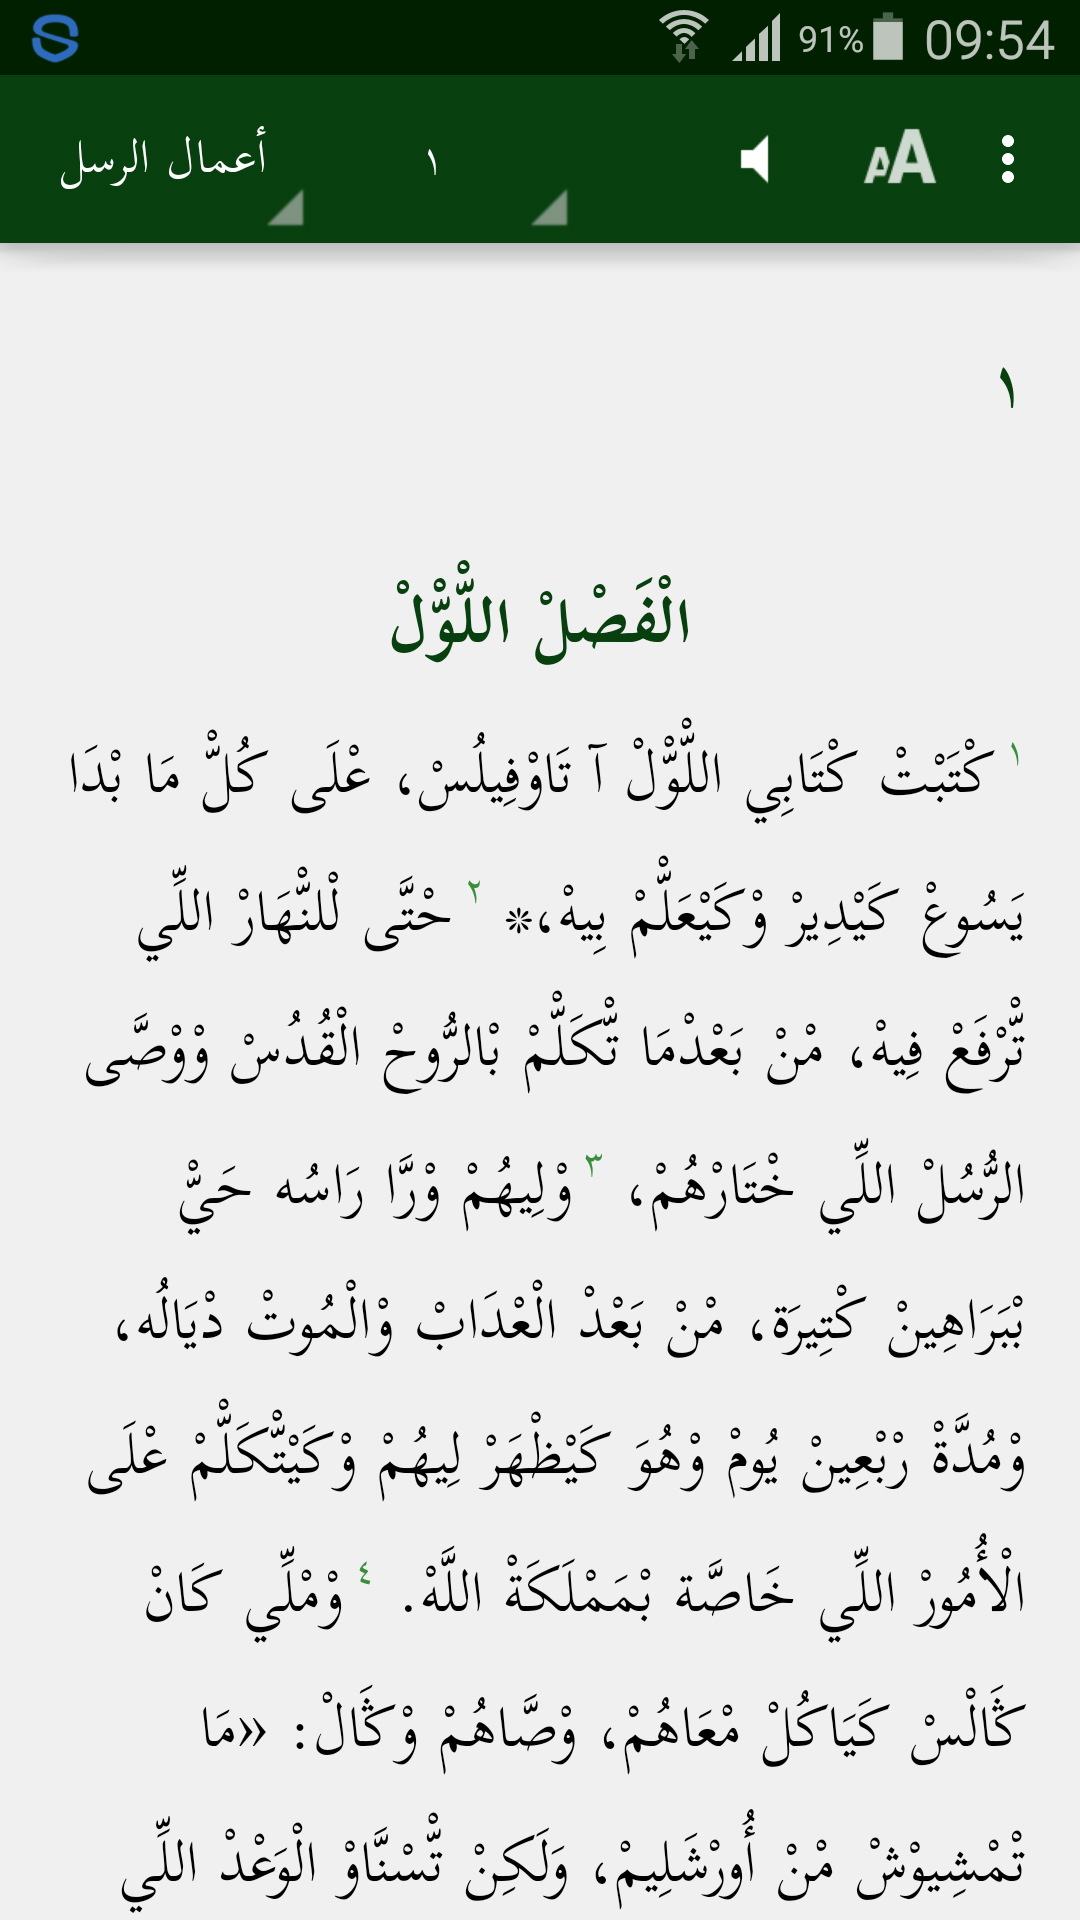 91% 09:54
أعمال الرسل ١ AA
١
الْفَصْلْ اللُّوّْلْ
١ كْتَبْتْ كْتَابِي اللّْوّْلْ آ تَاوْفِيلُسْ، عْلَى كُلّْ مَا بْدَا
يَسُوعْ كَيْدِيرْ وْكَيْعَلّْمْ بِيهْ،* ٢ حْتَّى لْلنّْهَارْ اللِّي
تّْرْفَعْ فِيهْ، مْنْ بَعْدْمَا تّْكَلّْمْ بْالرُّوحْ الْقُدُسْ وْوْصَّى
الرُّسُلْ اللِّي خْتَارْهُمْ، ٣ وْلِيهُمْ وْرَّا رَاسُه حَيّْ
بْبَرَاهِينْ كْتِيرَة، مْنْ بَعْدْ الْعْدَابْ وْالْمُوتْ دْيَالُه،
وْمُدَّةْ رْبْعِينْ يُومْ وْهُوَ كَيْظْهَرْ لِيهُمْ وْكَيْتّْكَلّْمْ عْلَى
الْأُمُورْ اللِّي خَاصَّة بْمَمْلَكَةْ اللَّهْ. ٤ وْمْلِّي كَانْ
ڭَالْسْ كَيَاكُلْ مْعَاهُمْ، وْصَّاهُمْ وْڭَالْ: «مَا
تْمْشِيوْشْ مْنْ أُورْشَلِيمْ، وَلَكِنْ تّْسْنَّاوْ الْوَعْدْ اللِّي